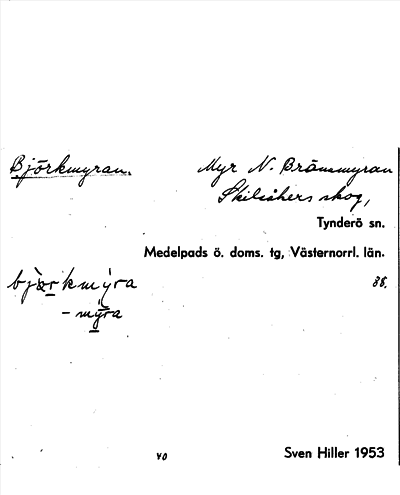 Björkmyran.
Myr N. Brännmyran
skog,
Tynderö sn.
Medelpads ö. doms. tg, Västernorrl. län.
38.
björkmýra
- mýra
40
Sven Hiller 1953